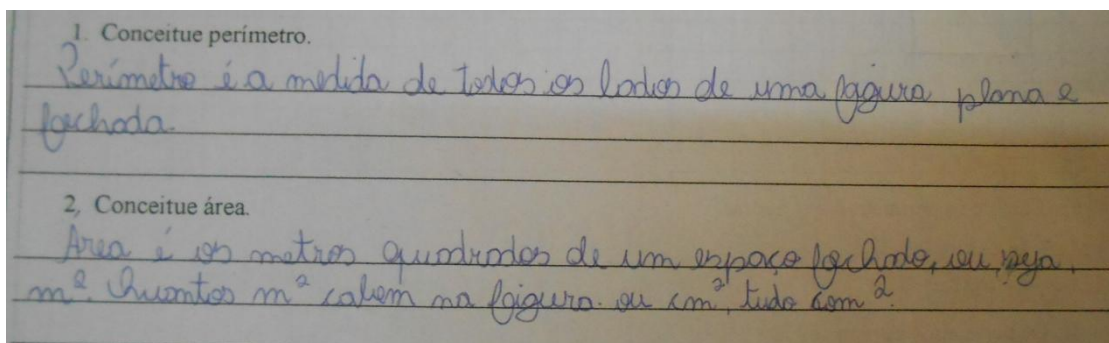 1. Conceitue perímetro.
Perímetro é a medida de todos os lados de uma figura plana e
fechada.
2, Conceitue área.
Área é os metros quadrados de um espaço fechado, ou seja,
m². Quantos m² cabem na figura. ou cm², tudo com ².